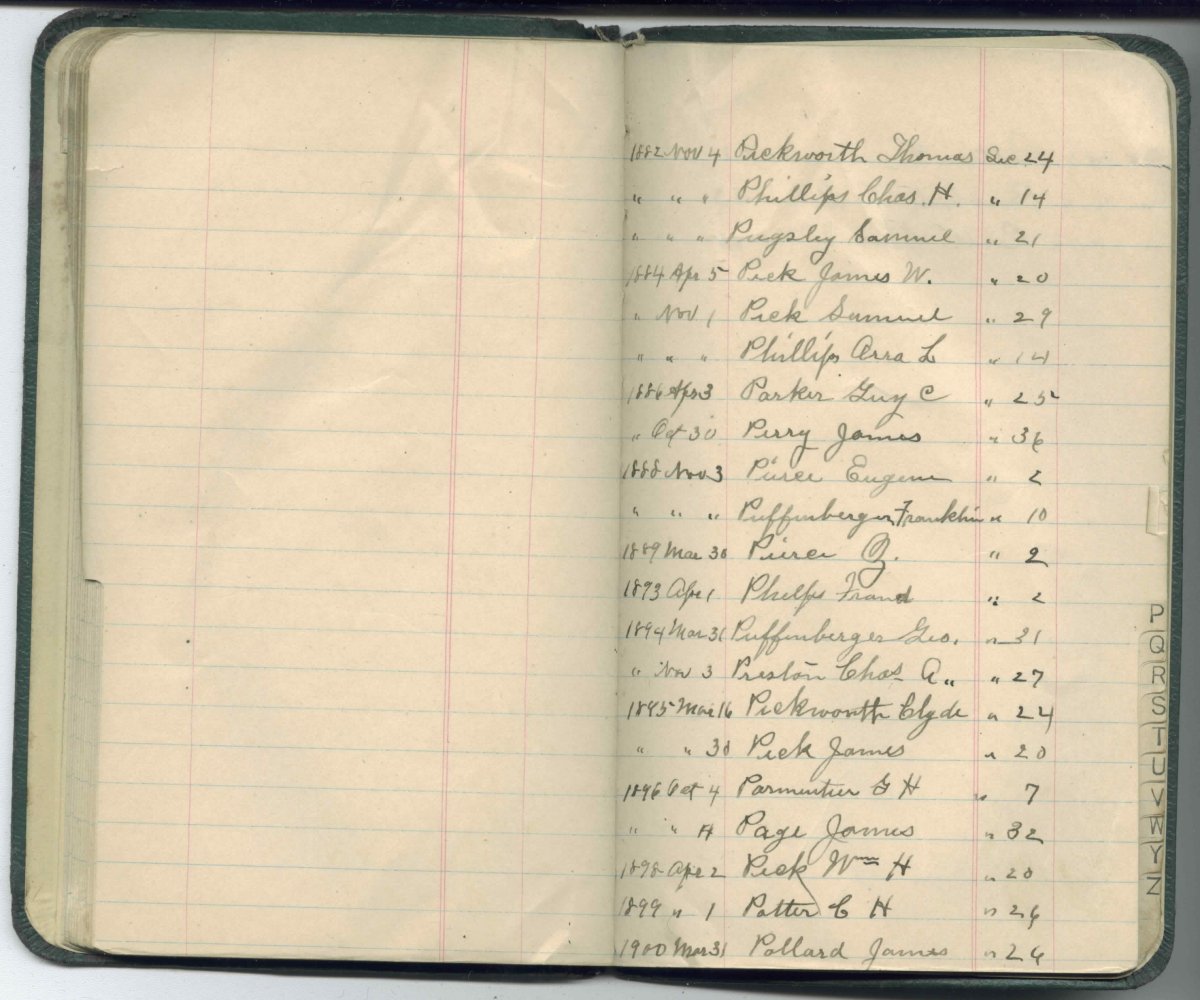 1882 Nov 4 Peckworth Thomas Sec 24
" " " Phillips Chas. H. " 14
" " " Pugsley Samuel " 21
1884 Apr 5 Peck James W. " 20
" Nov 1 Peck Samuel " 29
" " " Phillips Arra L " 14
1886 Apr 3 Parker Guy C " 25
" Oct 30 Perry James " 36
1888 Nov 3 Pierce Eugene " 2
" " " Puffenberger Franklin " 10
1889 Mar 30 Pierce O. " 2
1893 Apr 1 Phelps " 2
1894 Mar 31 Puffenberger Geo. " 31
" Nov 3 Preston Chas A " 27
1895 Mar 16 Peckworth Clyde " 24
" " 30 Peck James " 20
1896 Oct 4 Parmentier G H " 7
" " " Page James " 32
1898 Apr 2 Peck Wm H " 20
1899 " 1 Potter C H " 26
1900 Mar 31 Pollard James " 26
P
Q
R
S
T
U
V
W
Y
Z